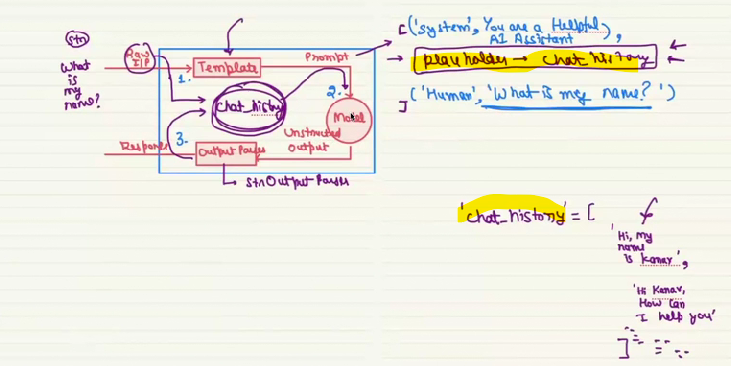 str
What
is
my
name?
Raw
I/P
1.
Template
Prompt
chat_history
2.
Model
3.
Response
Output Parser
Unstructed
Output
StrOutput Parser
[ ('system', You are a Helpful,
AI Assistant
) ,
placeholder → chat_history
('Human', 'What is my name?')
]
'chat_history' = [
'Hi, my
name
is Kanav',
'Hi Kanav,
How Can
I help you'
]